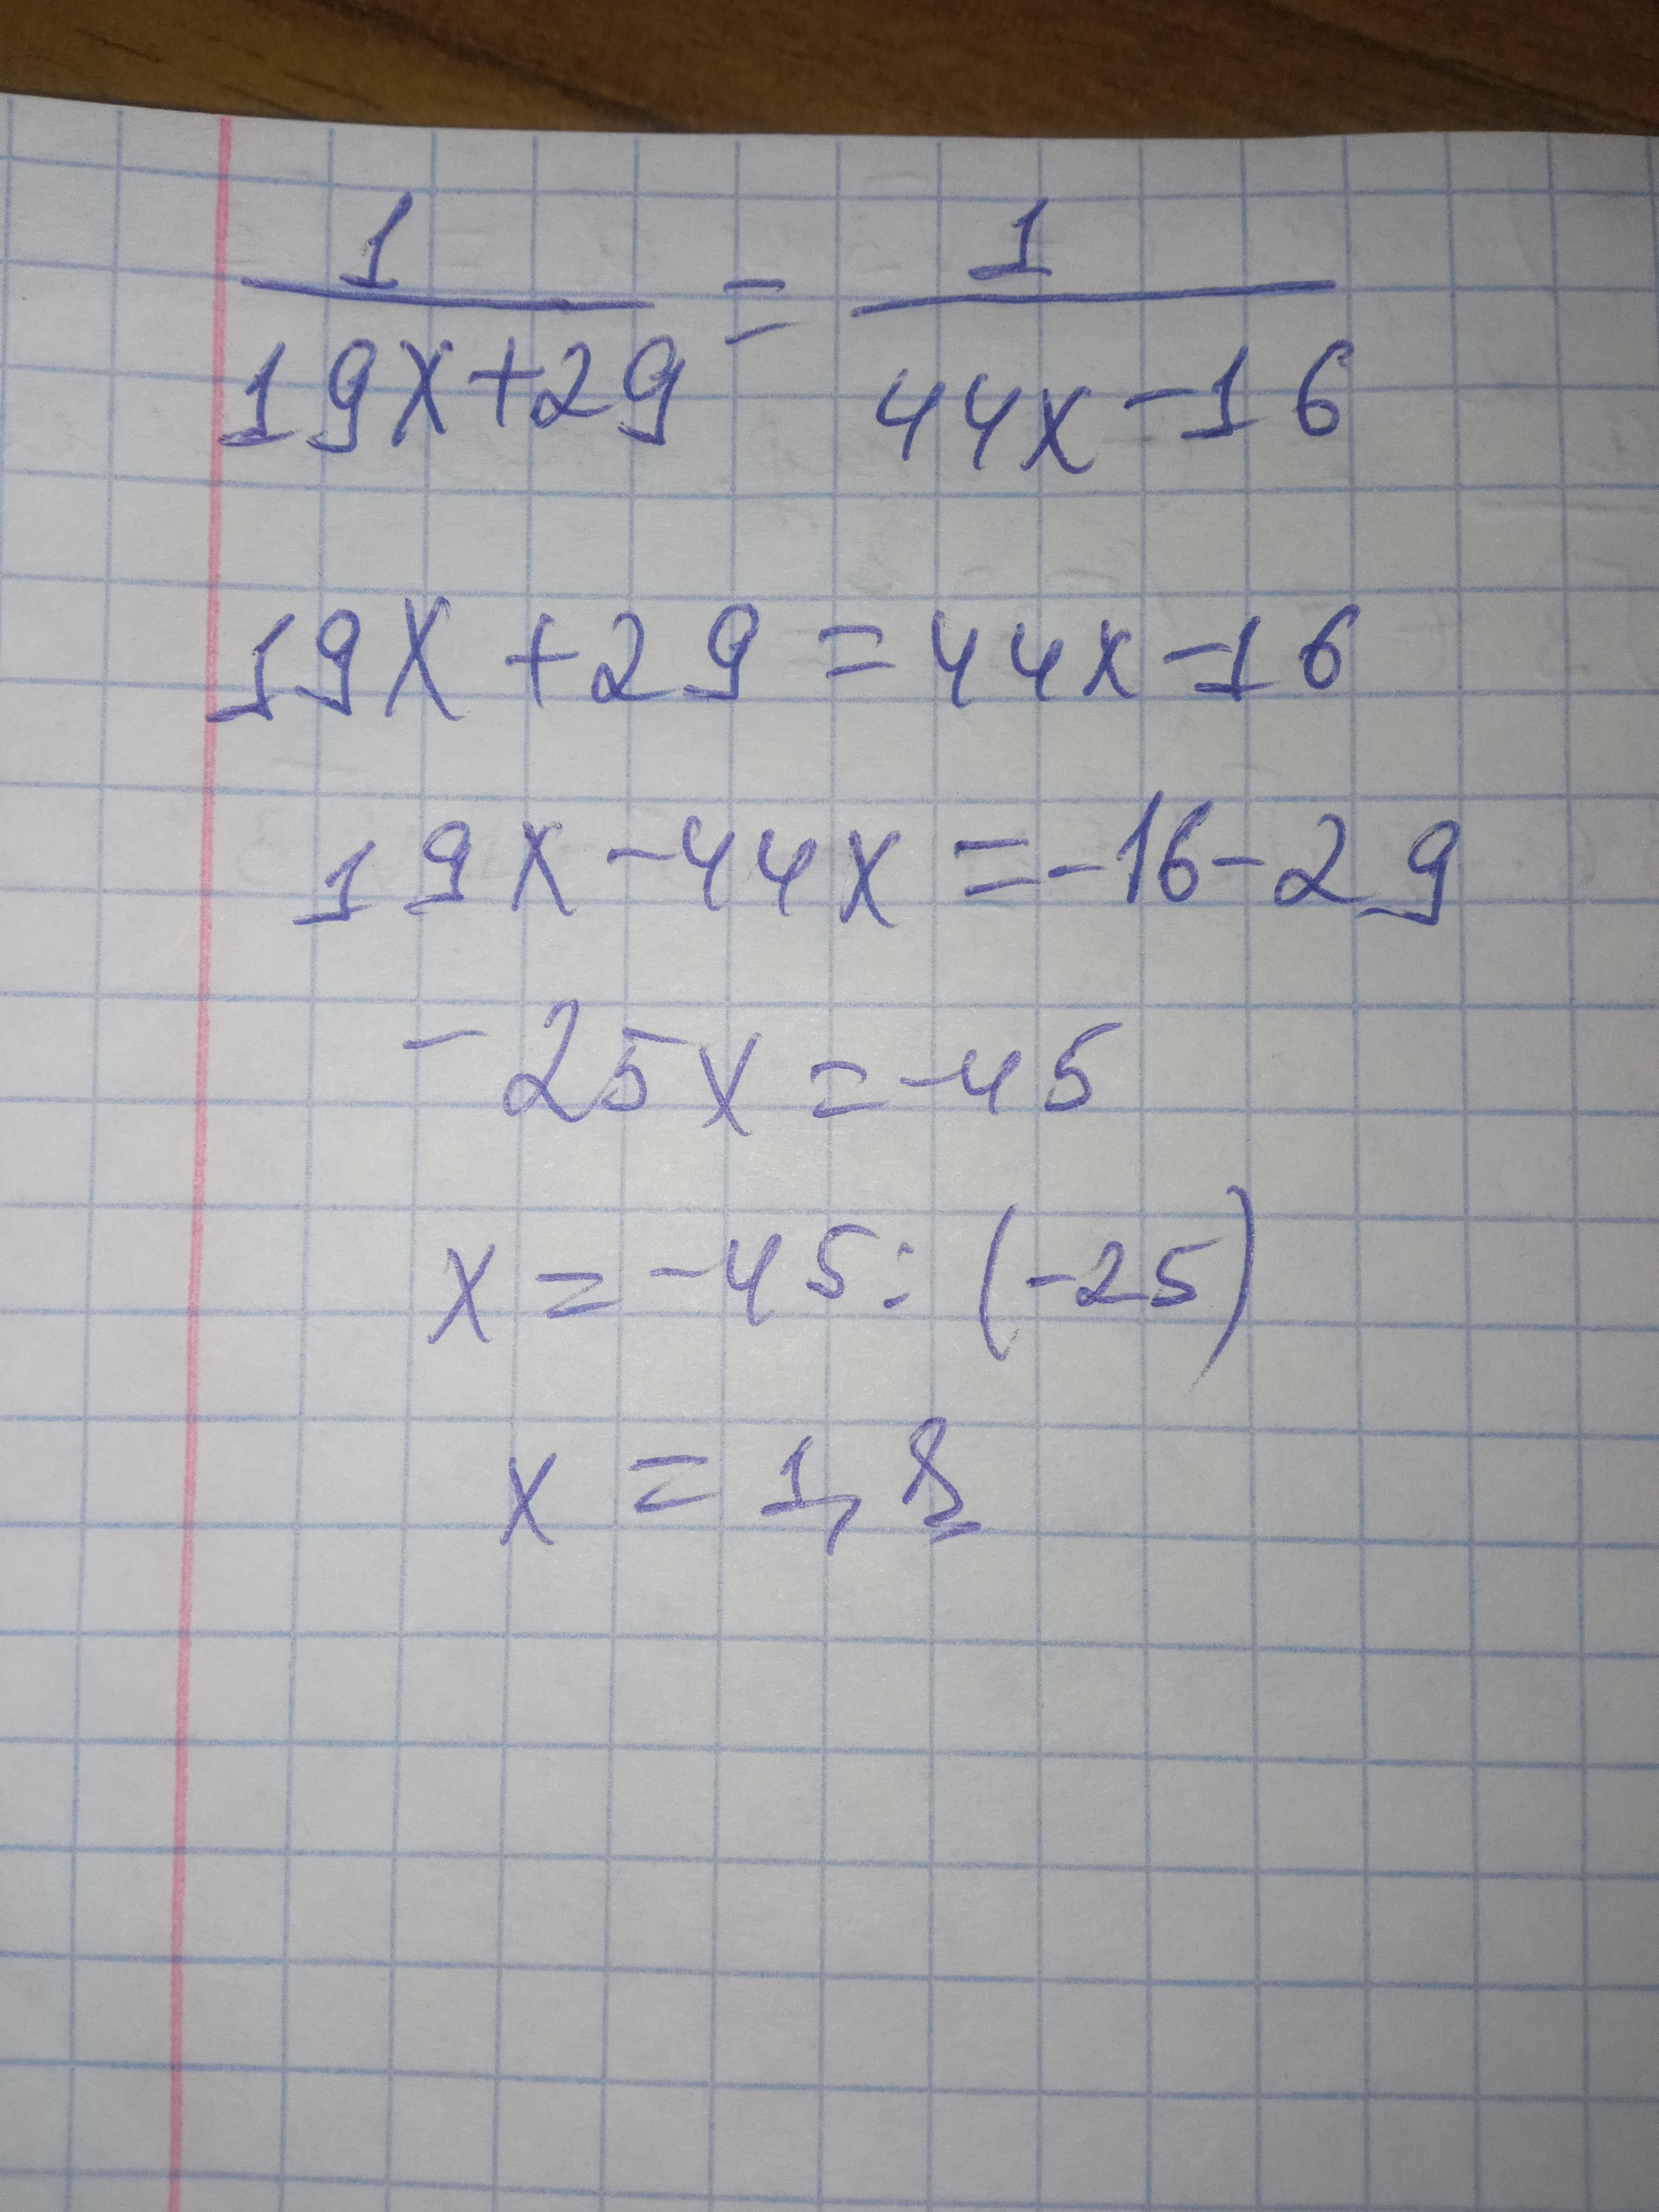 1/(19x+29) = 1/(44x-16)
19x+29=44x-16
19x-44x=-16-29
-25x=-45
x=-45:(-25)
x=1,8